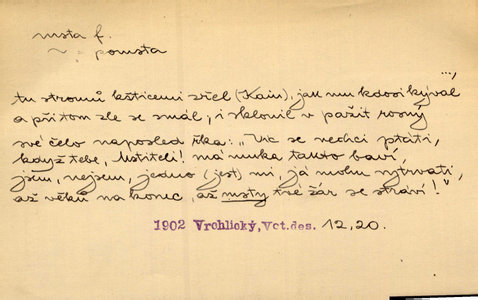 msta f.
~ = pomsta
...,
tu stromů kšticemi zřel (Kain), jak mu kdosi kýval
a při tom zle se smál, i sklonil v pažit rosný
své čelo naposled řka: „Víc se nechci ptáti,
když tebe, Mstiteli! má muka takto baví,
jsem, nejsem, jedno (jest) mi, já mohu vytrvati,
až věků na konec, až msty tvé žár se straví!"
1902 Vrchlický, Vct. des. 12, 20.